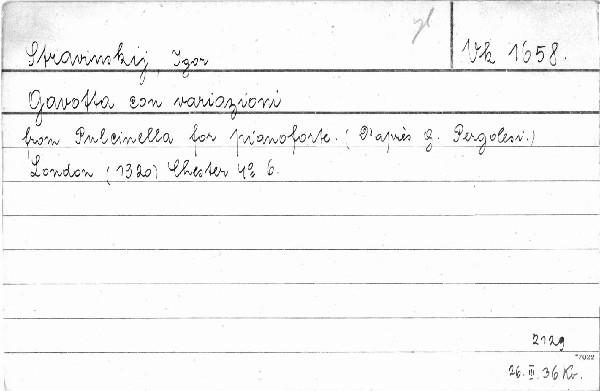 Stravinskij, Igor
Vk 1658.
Gavotta con variazioni
from Pulcinella for pianoforte. (D'après G. Pergolesi.)
London (1920) Chester 4° 6.
212g
*7022
26. II. 36 Kv.